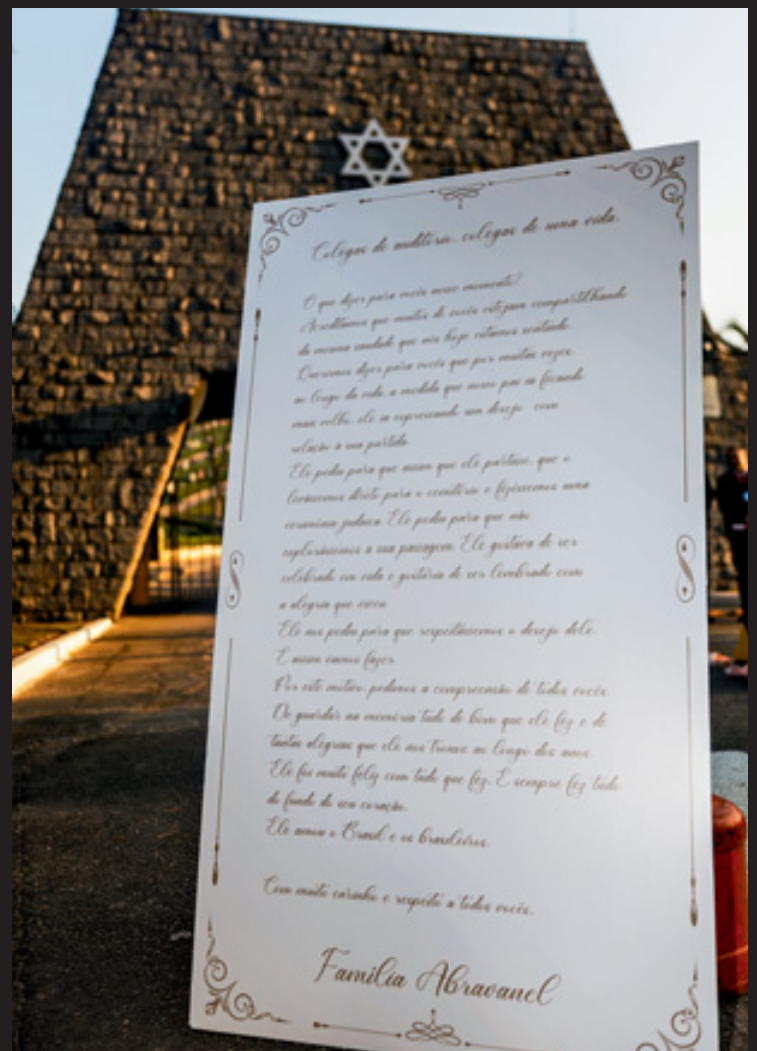 Colegas de auditório, colegas de uma vida.
O que dizer para vocês nesse momento?
Acreditamos que muitos de vocês estejam compartilhando
da mesma saudade que nós hoje estamos sentindo.
Queremos dizer para vocês que por muitas vezes,
ao longo da vida, a medida que nosso pai ia ficando
mais velho, ele ia expressando um desejo com
relação à sua partida.
Ele pediu para que assim que ele partisse, que o
levássemos direto para o cemitério e fizéssemos uma
cerimônia judaica. Ele pediu para que não
explorássemos a sua passagem. Ele gostava de ser
celebrado em vida e gostaria de ser lembrado com
a alegria que viveu.
Ele nos pediu para que respeitássemos o desejo dele.
E assim vamos fazer.
Por este motivo, pedimos a compreensão de todos vocês.
De guardar na memória tudo de bom que ele fez e de
tantas alegrias que ele nos trouxe ao longo dos anos.
Ele foi muito feliz com tudo que fez. E sempre fez tudo
do fundo do seu coração.
Ele amou o Brasil e os brasileiros.
Com muito carinho e respeito a todos vocês,
Família Abravanel